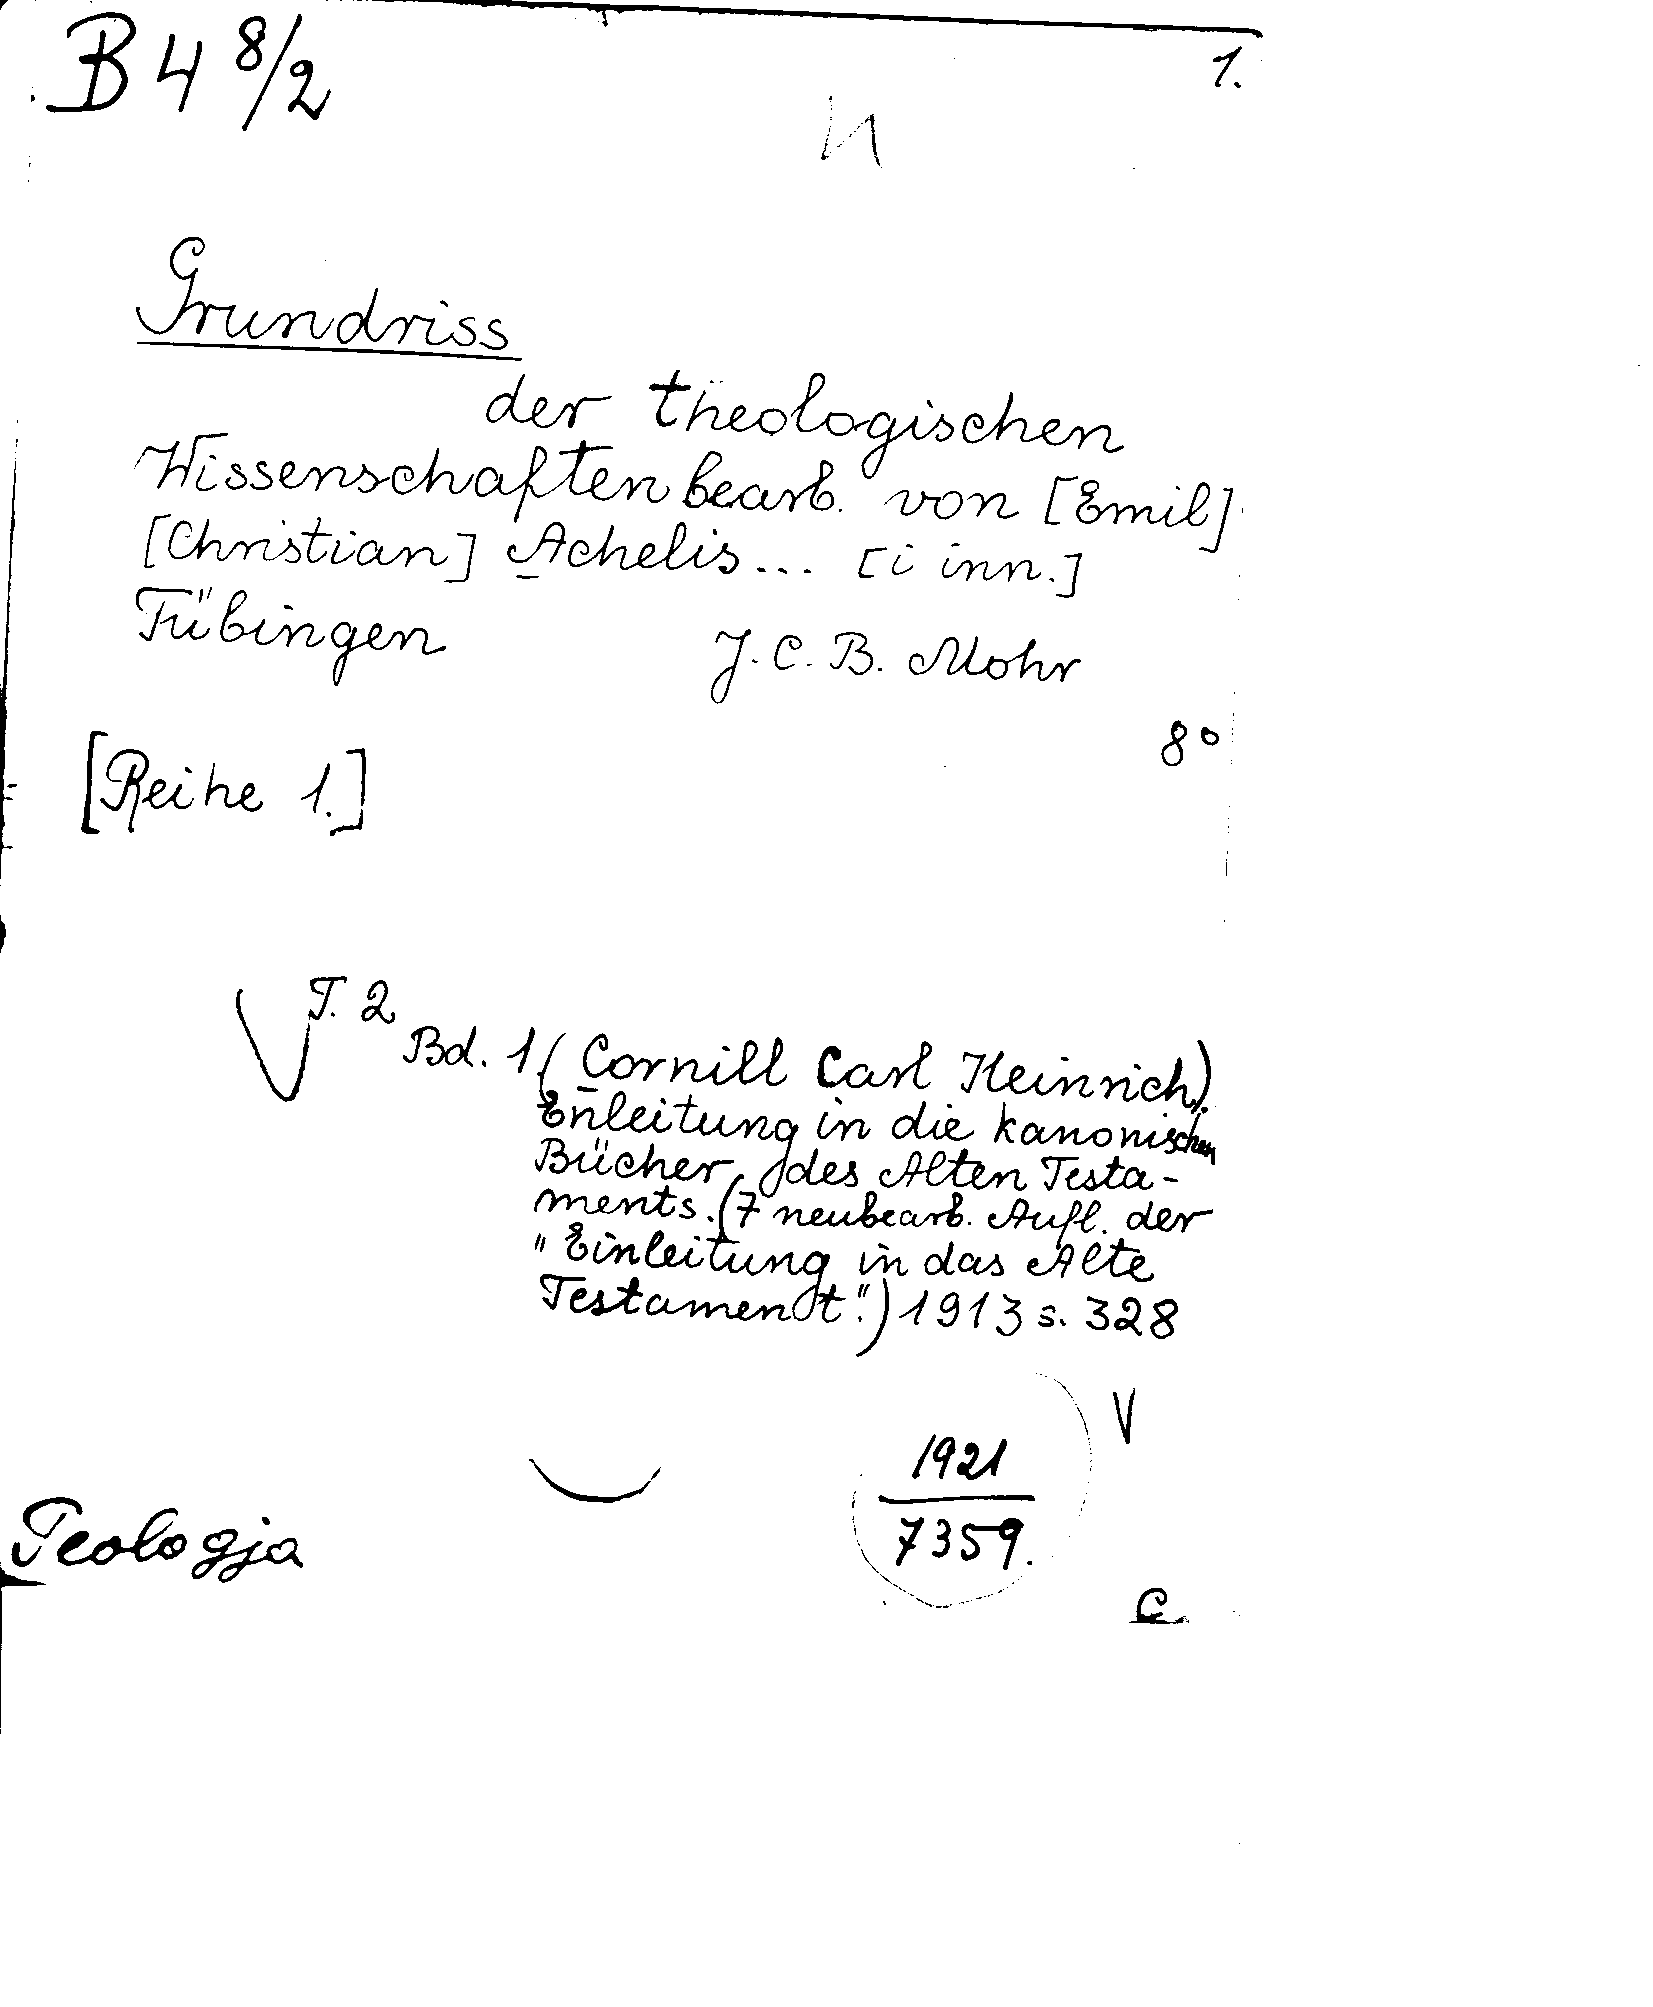 B 4 8/2
1.
Grundriss
der theologischen
Wissenschaften bearb. von [Emil]
[Christian] Achelis... [i inn.]
Tübingen J. C. B. Mohr
8°
[Reihe 1.]
T. 2
Bd. 1. (Cornill Carl Heinrich).
Enleitung in die kanonischen
Bücher des Alten Testa-
ments. (7 neubearb. Aufl. der
"Einleitung in das Alte
Testament".) 1913 s. 328
V
1921
7359.
Teologja
C.